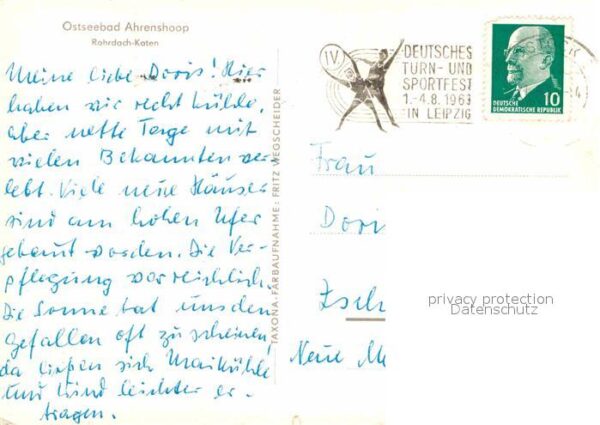 Ostseebad Ahrenshoop
Rohrdach-Katen
Meine liebe Doris! Hier
haben wir recht kühle,
aber nette Tage mit
vielen Bekannten ver-
lebt. Viele neue Häuser
sind am hohen Ufer
gebaut worden. Die Ver-
pflegung war reichlich.
Die Sonne tat uns den
Gefallen oft zu scheinen,
da ließen sich Maikühle
und Wind leichter er-
tragen.
TAXONA-FARBAUFNAHME: FRITZ WEGSCHEIDER
IV.
DEUTSCHES
TURN- UND
SPORTFEST
1.-4.8.1963
IN LEIPZIG
10
DEUTSCHE
DEMOKRATISCHE REPUBLIK
Frau
Dori
Zsch
Neue M
privacy protection
Datenschutz